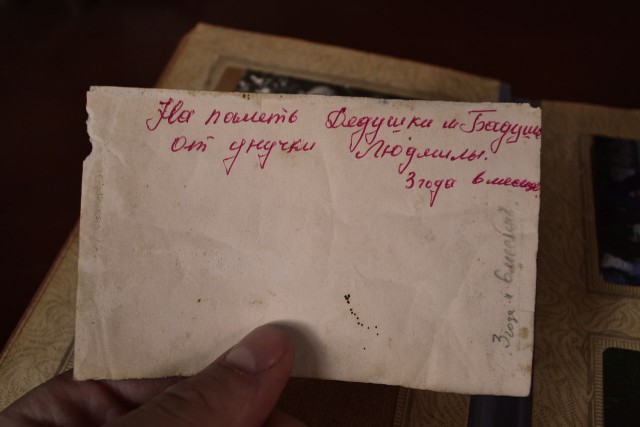 На паметь Дедушки и Бадушк
от унучки Людмилы.
3 года 6 месяце
3 года 6 месяцев.